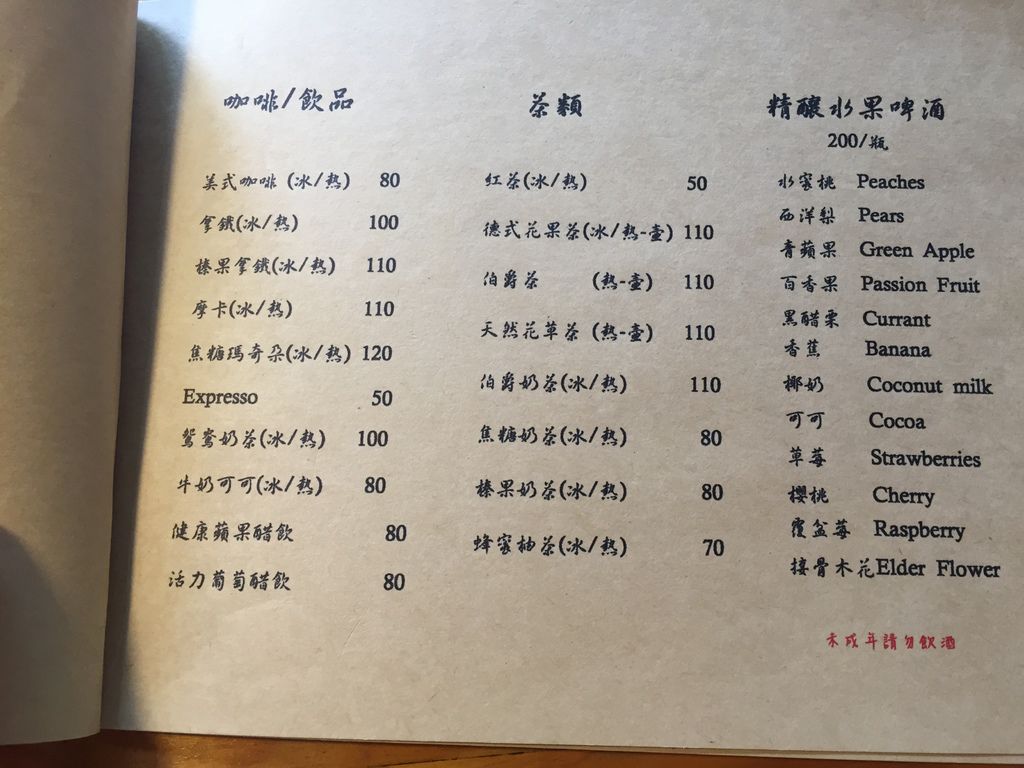 咖啡/飲品
美式咖啡 (冰/熱) 80
拿鐵(冰/熱) 100
榛果拿鐵(冰/熱) 110
摩卡(冰/熱) 110
焦糖瑪奇朵(冰/熱) 120
Expresso 50
鴛鴦奶茶(冰/熱) 100
牛奶可可(冰/熱) 80
健康蘋果醋飲 80
活力葡萄醋飲 80
茶類
紅茶(冰/熱) 50
德式花果茶(冰/熱-壺) 110
伯爵茶 (熱-壺) 110
天然花草茶 (熱-壺) 110
伯爵奶茶(冰/熱) 110
焦糖奶茶(冰/熱) 80
榛果奶茶(冰/熱) 80
蜂蜜柚茶(冰/熱) 70
精釀水果啤酒
200/瓶
水蜜桃 Peaches
西洋梨 Pears
青蘋果 Green Apple
百香果 Passion Fruit
黑醋栗 Currant
香蕉 Banana
椰奶 Coconut milk
可可 Cocoa
草莓 Strawberries
櫻桃 Cherry
覆盆莓 Raspberry
接骨木花Elder Flower
未成年請勿飲酒